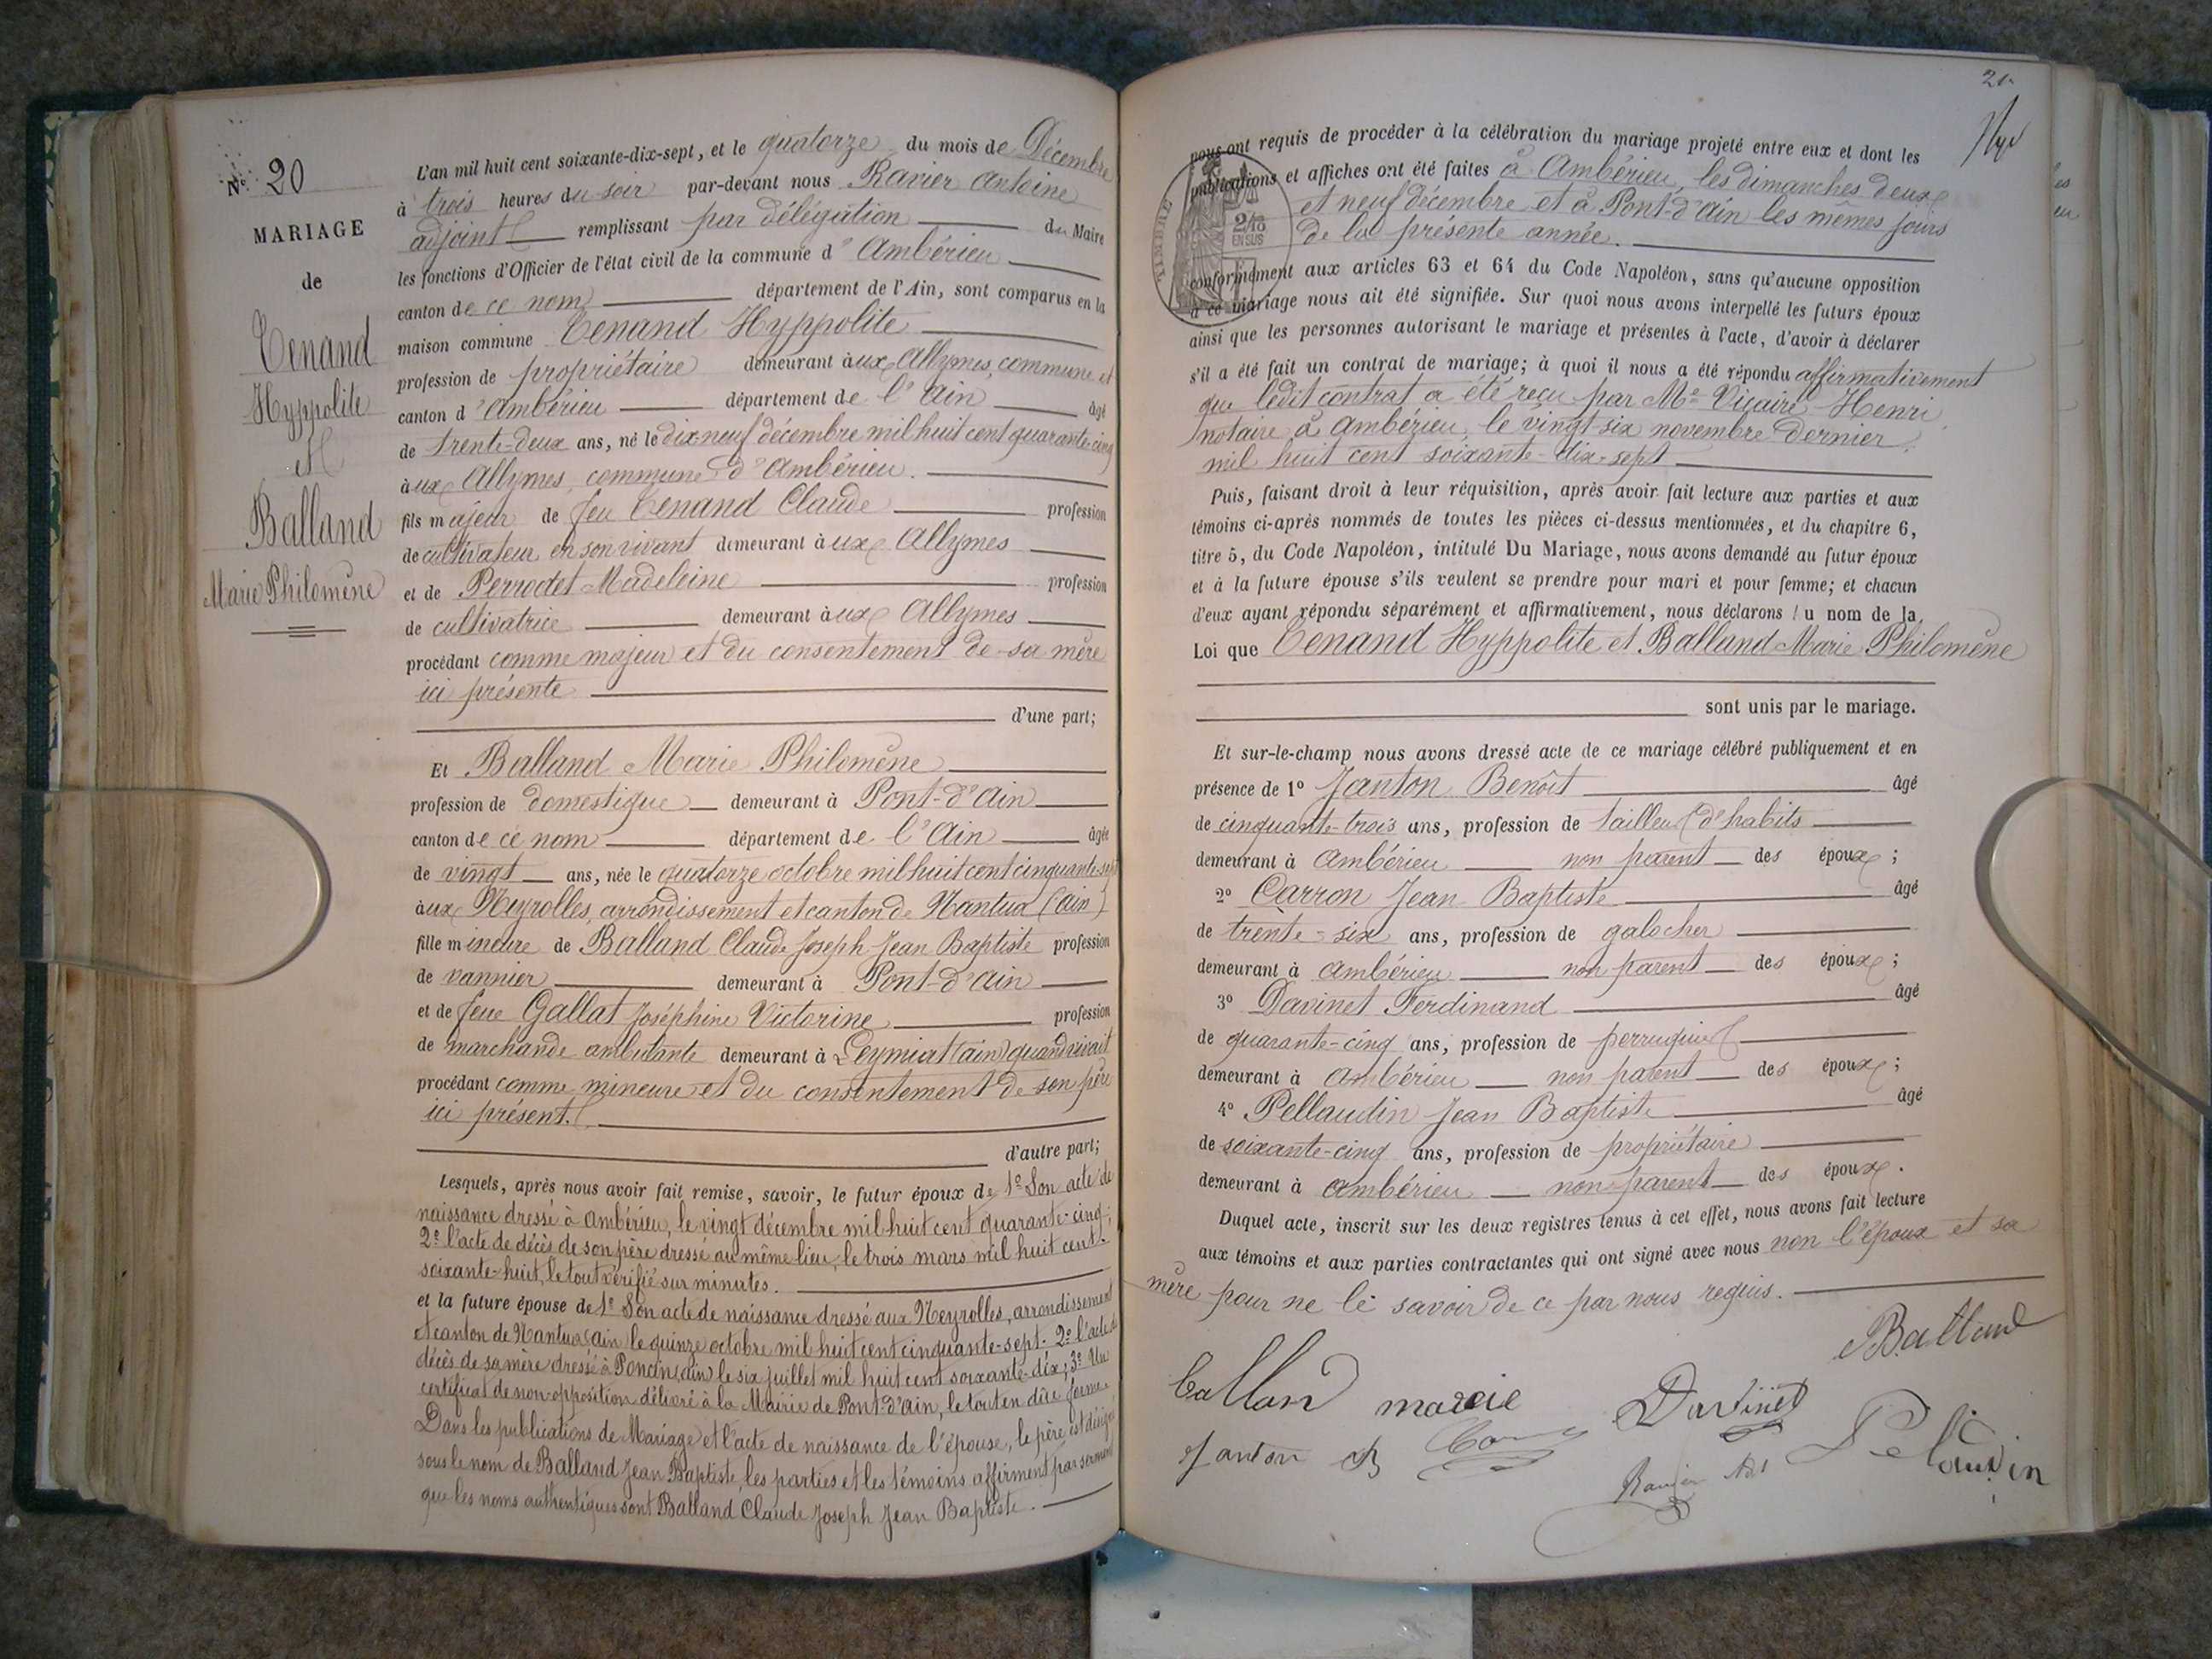 N° 20
MARIAGE
de
Tenand
Hyppolite
Et
Balland
Marie Philomène
L'an mil huit cent soixante-dix-sept, et le quatorze du mois de Décembre
à trois heures du soir par-devant nous Ravier Antoine
adjoint remplissant par délégation du Maire
les fonctions d'Officier de l'état civil de la commune d'Ambérieu
canton de ce nom département de l'Ain, sont comparus en la
maison commune Tenand Hyppolite
profession de propriétaire demeurant aux Allymes, commune et
canton d'Ambérieu département de l'Ain âgé
de trente-deux ans, né le dix neuf décembre mil huit cent quarante-cinq
aux Allymes, commune d'Ambérieu.
fils majeur de feu Tenand Claude profession
de cultivateur en son vivant demeurant aux Allymes
et de Perrodet Madeleine profession
de cultivatrice demeurant aux Allymes
procédant comme majeur et du consentement de sa mère
ici présente
d'une part;
Et Balland Marie Philomène
profession de domestique demeurant à Pont-d'Ain
canton de ce nom département de l'Ain âgée
de vingt ans, née le quatorze octobre mil huit cent cinquante-sept
aux Neyrolles, arrondissement et canton de Nantua (Ain)
fille mineure de Balland Claude Joseph Jean Baptiste profession
de vannier demeurant à Pont-d'Ain
et de feue Gallat Joséphine Victorine profession
de marchande ambulante demeurant à Leymiat (Ain) quand vivait
procédant comme mineure et du consentement de son père
ici présent.
d'autre part;
Lesquels, après nous avoir fait remise, savoir, le futur époux de 1° Son acte de
naissance dressé à Ambérieu, le vingt décembre mil huit cent quarante-cinq;
2° l'acte de décès de son père dressé au même lieu, le trois mars mil huit cent-
soixante-huit, le tout vérifié sur minutes.
et la future épouse de 1° Son acte de naissance dressé aux Neyrolles, arrondissement
et canton de Nantua (Ain) le quinze octobre mil huit cent cinquante-sept. 2° l'acte de
décès de sa mère dressé à Poncin (Ain) le six juillet mil huit cent soixante-dix; 3° Un
certificat de non-opposition délivré à la Mairie de Pont-d'Ain, le tout en due forme.
Dans les publications de Mariage et l'acte de naissance de l'épouse, le père est désigné
sous le nom de Balland Jean Baptiste, les parties et les témoins affirment par serment
que les noms authentiques sont Balland Claude Joseph Jean Baptiste.
21
nous ont requis de procéder à la célébration du mariage projeté entre eux et dont les
publications et affiches ont été faites à Ambérieu, les dimanches deux
et neuf décembre et à Pont-d'Ain les mêmes jours
de la présente année.
TIMBRE
2/10
EN SUS
conformément aux articles 63 et 64 du Code Napoléon, sans qu'aucune opposition
à ce mariage nous ait été signifiée. Sur quoi nous avons interpellé les futurs époux
ainsi que les personnes autorisant le mariage et présentes à l'acte, d'avoir à déclarer
s'il a été fait un contrat de mariage; à quoi il nous a été répondu affirmativement
que ledit contrat a été reçu par Me Vicaire Henri
notaire à Ambérieu, le vingt-six novembre dernier,
mil huit cent soixante-dix-sept
Puis, faisant droit à leur réquisition, après avoir fait lecture aux parties et aux
témoins ci-après nommés de toutes les pièces ci-dessus mentionnées, et du chapitre 6,
titre 5, du Code Napoléon, intitulé Du Mariage, nous avons demandé au futur époux
et à la future épouse s'ils veulent se prendre pour mari et pour femme; et chacun
d'eux ayant répondu séparément et affirmativement, nous déclarons au nom de la
Loi que Tenand Hyppolite et Balland Marie Philomène
sont unis par le mariage.
Et sur-le-champ nous avons dressé acte de ce mariage célébré publiquement et en
présence de 1° Janton Benoît âgé
de cinquante-trois ans, profession de tailleur d'habits
demeurant à Ambérieu non parent des époux;
2° Carron Jean Baptiste âgé
de trente-six ans, profession de galocher
demeurant à Ambérieu non parent des époux;
3° Davinet Ferdinand âgé
de quarante-cinq ans, profession de perruquier
demeurant à Ambérieu non parent des époux;
4° Pellaudin Jean Baptiste âgé
de soixante-cinq ans, profession de propriétaire
demeurant à Ambérieu non parent des époux.
Duquel acte, inscrit sur les deux registres tenus à cet effet, nous avons fait lecture
aux témoins et aux parties contractantes qui ont signé avec nous non l'époux et sa
mère pour ne le savoir de ce par nous requis.
Balland
balland marie Davinet
Janton B Ravier Adt Pelaudin